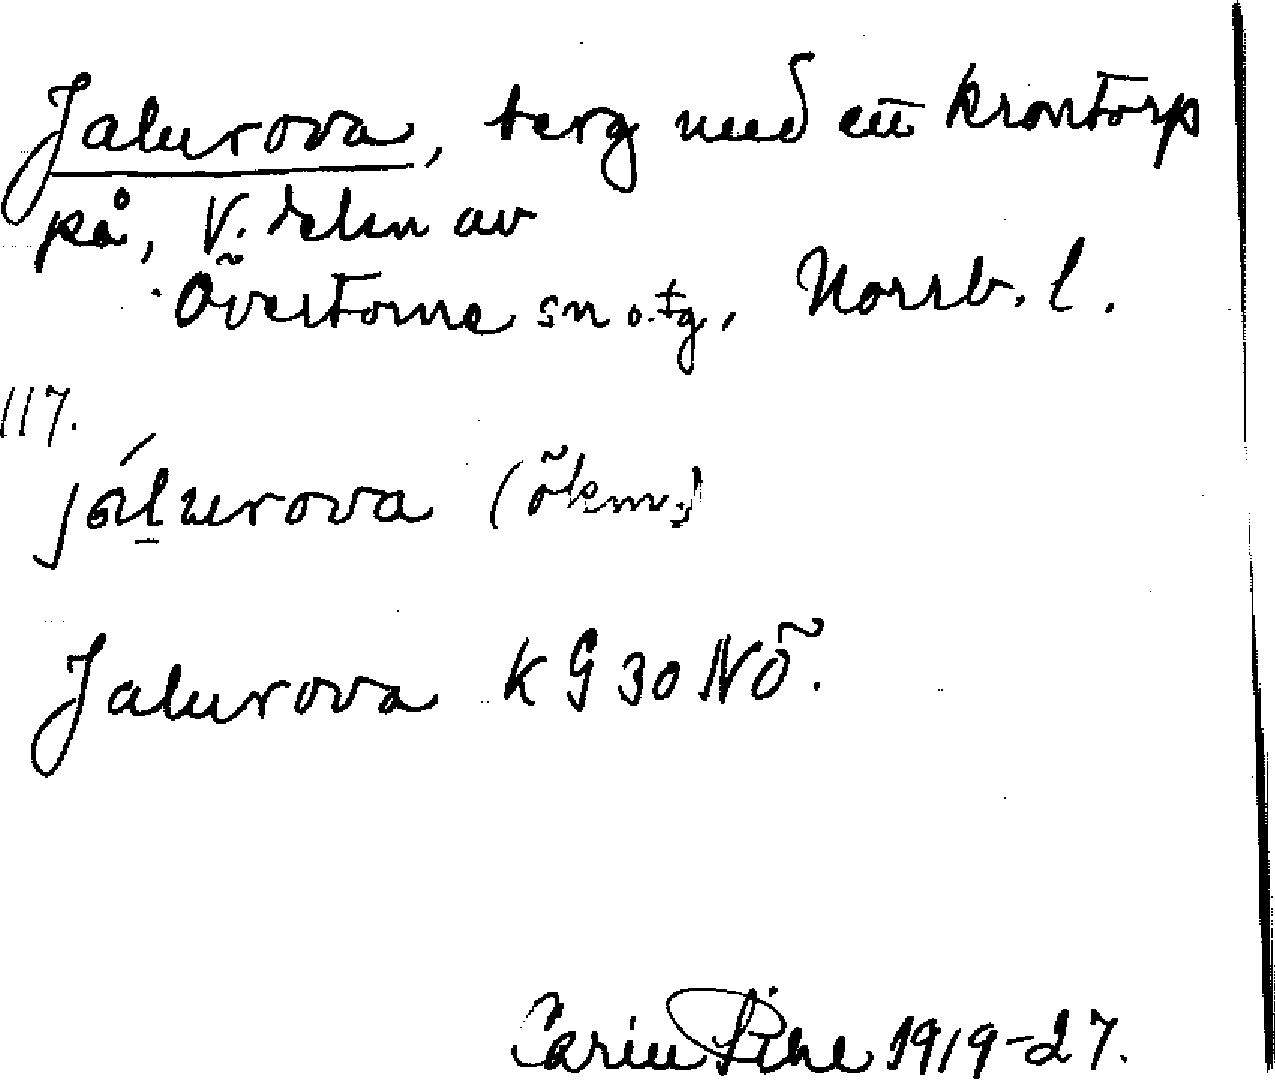 Jalurova, berg med ett krontorp
på, V. delen av
Övertorne sn o. tg, Norrb. l.
117.
jálurova (öknv.)
Jalurova KG 30 NÖ.
Carin Pihl 1919-27.